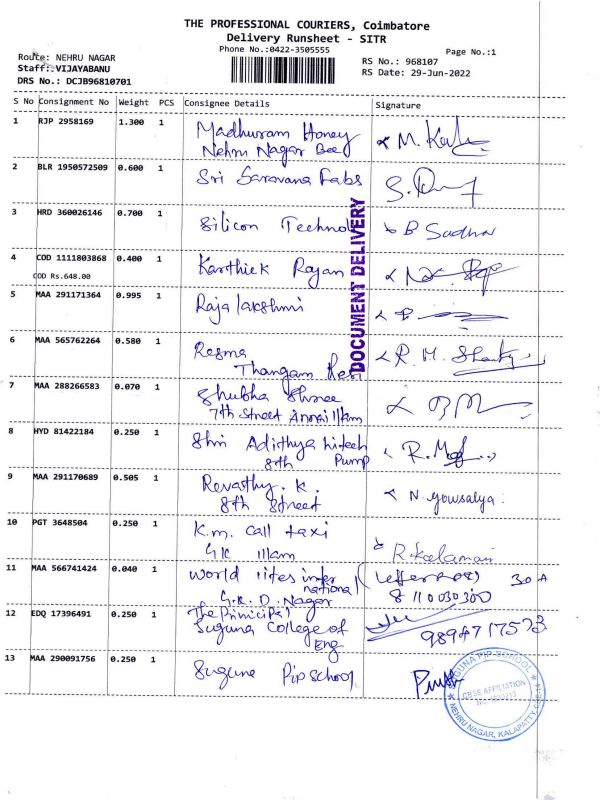 THE PROFESSIONAL COURIERS, Coimbatore
Delivery Runsheet - SITR
Phone No.:0422-3505555
Page No.:1
Route: NEHRU NAGAR
RS No.: 968107
Staff: VIJAYABANU
RS Date: 29-Jun-2022
DRS No.: DCJB96810701
S No Consignment No Weight PCS Consignee Details Signature
1 RJP 2958169 1.300 1 Madhuram Honey
Nehru Nagar Bee
2 BLR 1950572509 0.600 1 Sri Saravana Fabs
3 HRD 360026146 0.700 1 Silicon Technolo B Sadha
4 COD 1111803868 0.400 1 Karthick Rajan
COD Rs.648.00
5 MAA 291171364 0.995 1 Rajalakshmi
6 MAA 565762264 0.580 1 Resma R. M.
Thangam Resi
7 MAA 288266583 0.070 1 Shubha Shree
7th Street
8 HYD 81422184 0.250 1 Shri Adithya hitech
8th Pump
9 MAA 291170689 0.505 1 Revathy. K. N. gowsalya.
8th Street
10 PGT 3648504 0.250 1 K.m. call taxi
G.K illam
11 MAA 566741424 0.040 1 World inter
national
G.R.D. Nagar
8110030300
12 EDQ 17396491 0.250 1 The Principal
Suguna College of
Eng 9894717573
13 MAA 290091756 0.250 1 Sugune Pip school
DOCUMENT DELIVERY
SUGUNA PIP SCHOOL
CBSE AFFILIATION
NEHRU NAGAR, KALAPATTY